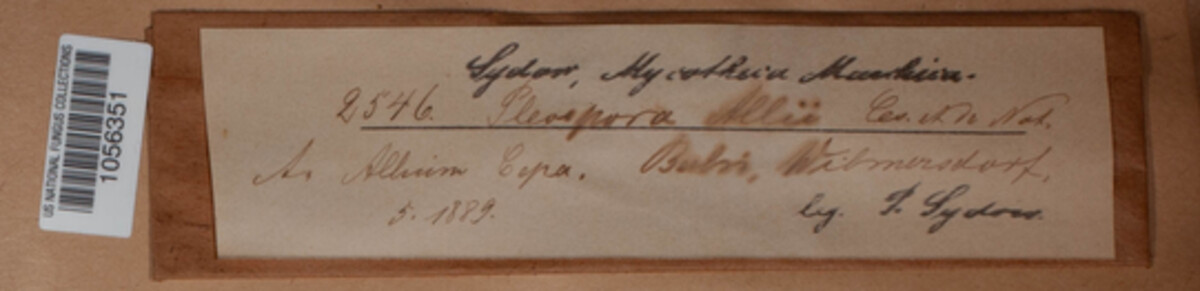 US NATIONAL FUNGUS COLLECTIONS
1056351
Sydow, Mycotheca Marchica.
2546. Pleospora Allii Ces. et de Not.
A. Allium Cepa. Berlin, Wilmersdorf.
5. 1889.
leg. P. Sydow.